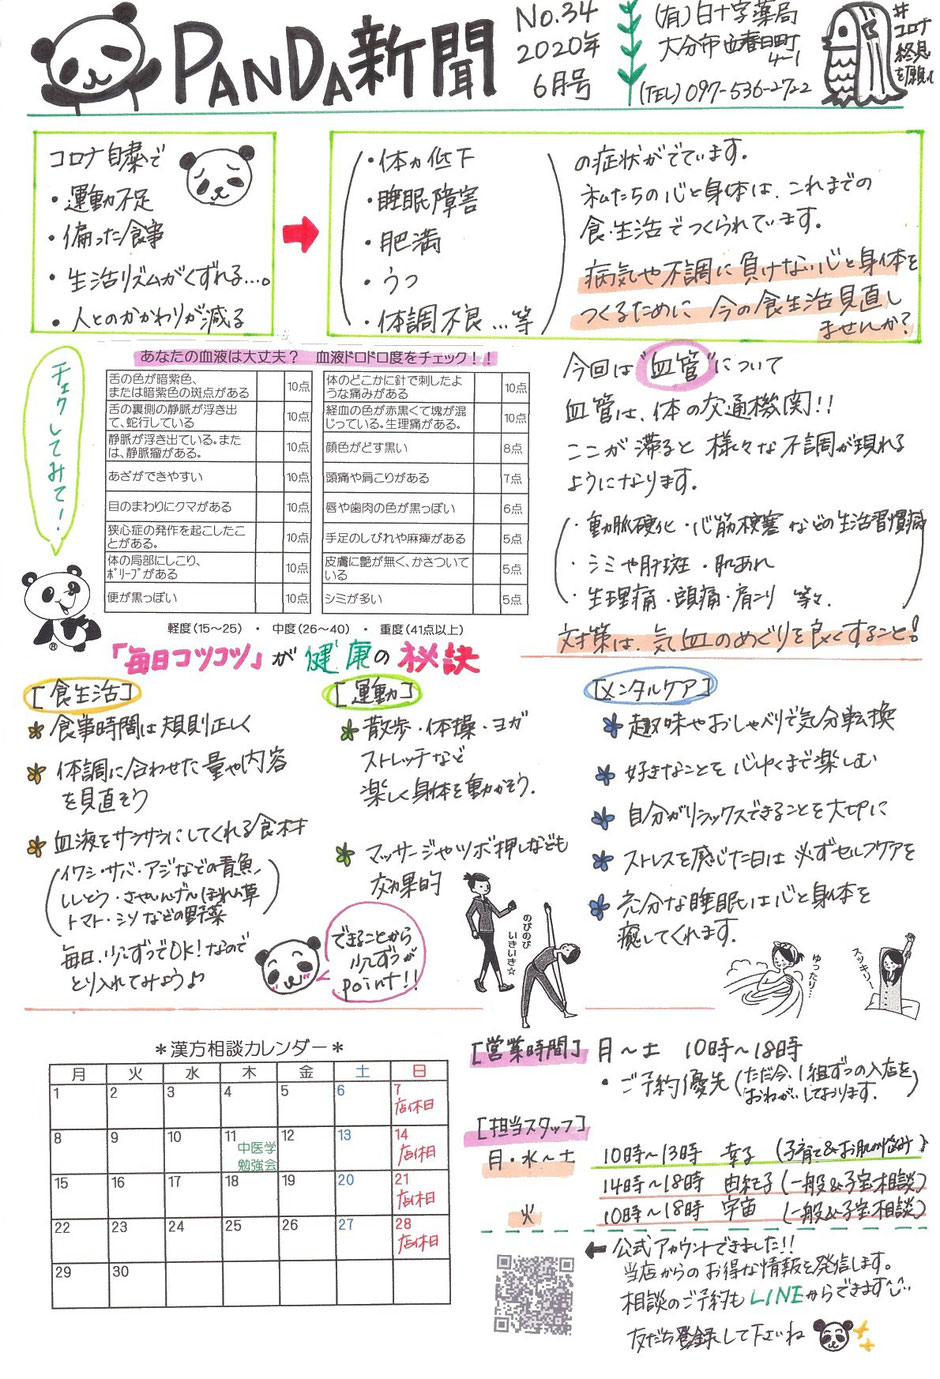 PANDA新聞
No.34
2020年
6月号
(有)白十字薬局
大分市西春日町
4-1
(TEL) 097-536-2722
#コロナ
終息
を願い
コロナ自粛で
・運動不足
・偏った食事
・生活リズムがくずれる…。
・人とのかかわりが減る
・体力低下
・睡眠障害
・肥満
・うつ
・体調不良…等
の症状がでています。
私たちの心と身体は、これまでの
食・生活でつくられています。
病気や不調に負けない心と身体を
つくるために 今の食生活見直し
ませんか?
チェックしてみて!
あなたの血液は大丈夫? 血液ドロドロ度をチェック!!
舌の色が暗紫色、
または暗紫色の斑点がある 10点
舌の裏側の静脈が浮き出
て、蛇行している 10点
静脈が浮き出ている。また
は、静脈瘤がある。 10点
あざができやすい 10点
目のまわりにクマがある 10点
狭心症の発作を起こしたこ
とがある。 10点
体の局部にしこり、
ポリープがある 10点
便が黒っぽい 10点
体のどこかに針で刺したよ
うな痛みがある 10点
経血の色が赤黒くて塊が混
じっている。生理痛がある。 10点
顔色がどす黒い 8点
頭痛や肩こりがある 7点
唇や歯肉の色が黒っぽい 6点
手足のしびれや麻痺がある 5点
皮膚に艶が無く、かさついて
いる 5点
シミが多い 5点
軽度(15~25) ・ 中度(26~40) ・ 重度(41点以上)
今回は"血管"について
血管は、体の交通機関!!
ここが滞ると様々な不調が現れる
ようになります。
・動脈硬化・心筋梗塞などの生活習慣病
・シミや肝斑・肌あれ
・生理痛・頭痛・肩こり 等々
対策は、気血のめぐりを良くすること!
「毎日コツコツ」が健康の秘訣
[食生活]
食事時間は規則正しく
体調に合わせた量や内容
を見直そう
血液をサラサラにしてくれる食材
イワシ・サバ・アジなどの青魚、
ししとう・さやいんげん・ほうれん草
トマト・シソなどの野菜
毎日、少しずつでOK!なので
とり入れてみよう♪
[運動]
散歩・体操・ヨガ
ストレッチなど
楽しく身体を動かそう。
マッサージやツボ押しなども
効果的
できることから
少しずつが
point!!
のびのび
いきいき☆
[メンタルケア]
趣味やおしゃべりで気分転換
好きなことを心ゆくまで楽しむ
自分がリラックスできることを大切に
ストレスを感じた日は必ずセルフケアを
充分な睡眠は心と身体を
癒してくれます。
ゆったり…
スッキリ~
*漢方相談カレンダー*
月 火 水 木 金 土 日
1 2 3 4 5 6 7
店休日
8 9 10 11 12 13 14
中医学
勉強会
店休日
15 16 17 18 19 20 21
店休日
22 23 24 25 26 27 28
店休日
29 30
[営業時間] 月~土 10時~18時
・ご予約優先 (ただ今、1組ずつの入店を
おねがいしております。)
[担当スタッフ]
月・水~土 10時~13時 幸子 (子育て&お肌の悩み)
14時~18時 由紀子 (一般&子宝相談)
火 10時~18時 宇宙 (一般&子宝相談)
← 公式アカウントできました!!
当店からのお得な情報を発信します。
相談のご予約もLINEからできます
友だち登録して下さいね